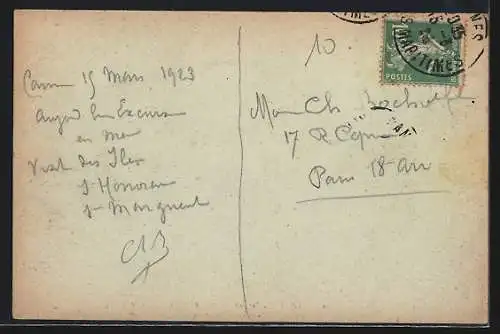 Cannes 15 Mars 1923
Aujord hui Excursion
en mer
Visit des Iles
St Honorat
Ste Marguerit
CB
10
Mon Ch
17 R
Paris 18e arr
POSTES
MARITIMES